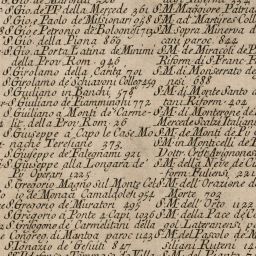 S. Gio. de PP. della Mercede 361
S. Gio. e Paolo de Missionarj 958
S. Gio. e Petronio de Bolognesi 713
S. Gio. della Pigna 860
S. Gio. a Porta Latina de Minimi
della Prov. Rom. 946
S. Girolamo della Carità 701
S. Girolamo de Schiavoni Colleg. 459
S. Giuliano in Banchi, 578
S. Giuliano de Fiamminghi 772
S. Giuliano a Monti de Carme-
lit. della Prov. Rom. 26
S. Giuseppe a Capo le Case Mo
nache Teresiane 373
S. Giuseppe de Falegnami 921
S. Giuseppe alla Longara de
Pij Operarj 1225
S. Gregorio Magno sul Monte Celi
io de Monaci Camaldolesi 954
S. Gregorio de Muratori 495
S. Gregorio a Ponte 4 Capi 1026
S. Grisogono de Carmelitani della
Congreg. di Mantoa parroc. 1143
S. Ignazio de Gesuiti 847
S. M. ad Martyres Coll
S. M. Sopra Minerva d
cani parroc. 844
S. M. de Miracoli de P
Riform. di S. Franc. P
S. M. di Monserrato de
nesi 688
S. M. di Monte Santo d
tani Riform. 404
S. M. di Monterone de
Mercede Scalzi Italiani
S. M. de Monti de Pu
S. M. in Monticelli de P
Dottr. Cr. di Avignone
S. M. della Neve de C
farm. Fulignj. 221
S. M. dell' Orazione d
Morte 729
S. M. dell' Orto 1122
S. M. della Pace de C
gol. Lateranensi p
S. M. del Pascolo de M
siliani Ruteni 14